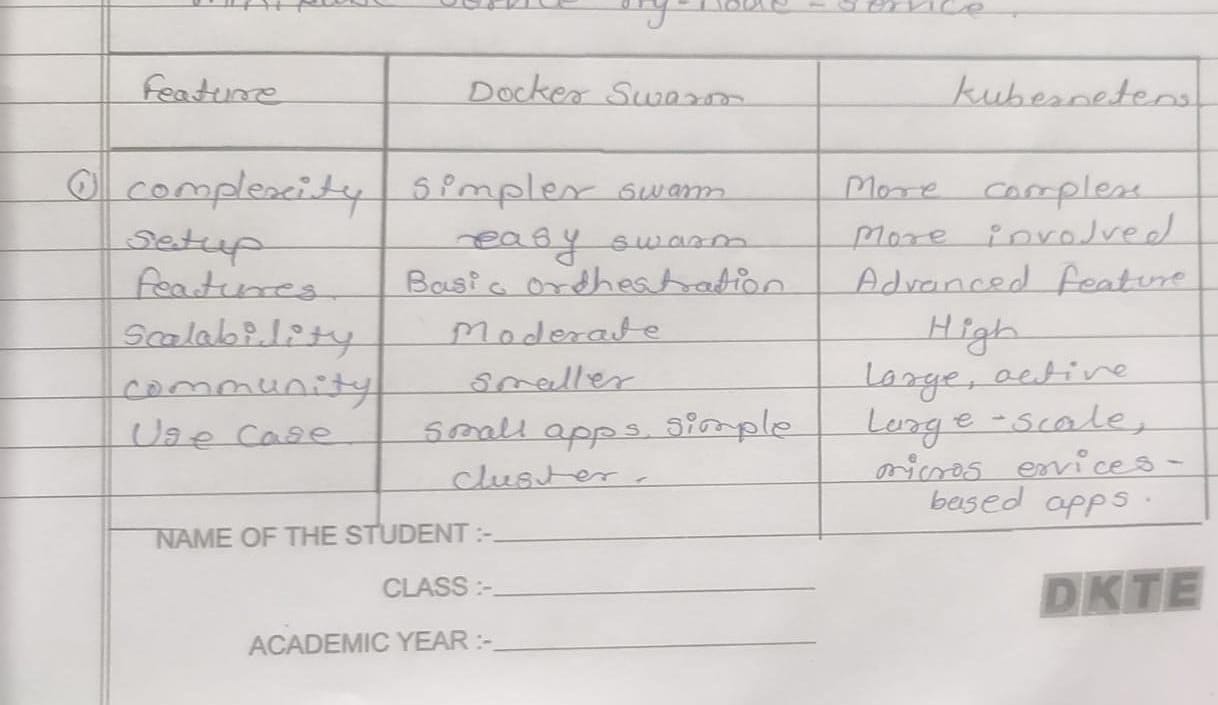 service
Feature Docker Swarm Kubernetens
① complexity simpler swarm More complex
setup easy swarm More involved
features. Basic ordhestration Advanced Feature
Scalability Moderate High
community smaller Large, active
Use Case small apps, simple Large-scale,
cluster. micros ervices-
based apps.
NAME OF THE STUDENT :-
CLASS :-
ACADEMIC YEAR :-
DKTE